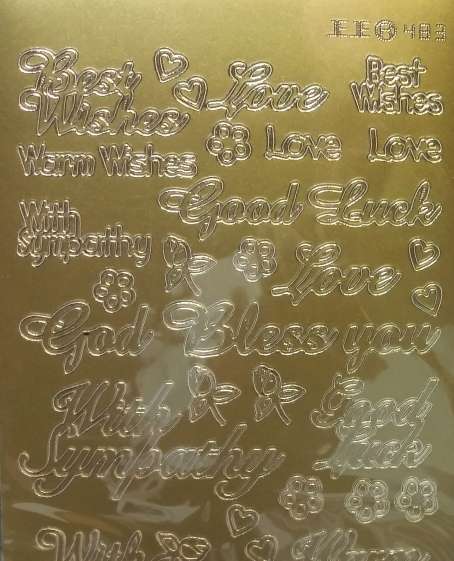 EE 483
Best Wishes
Love
Best Wishes
Warm Wishes
Love
Love
Good Luck
With Sympathy
Love
God Bless you
With Sympathy
Good Luck
With
Warm